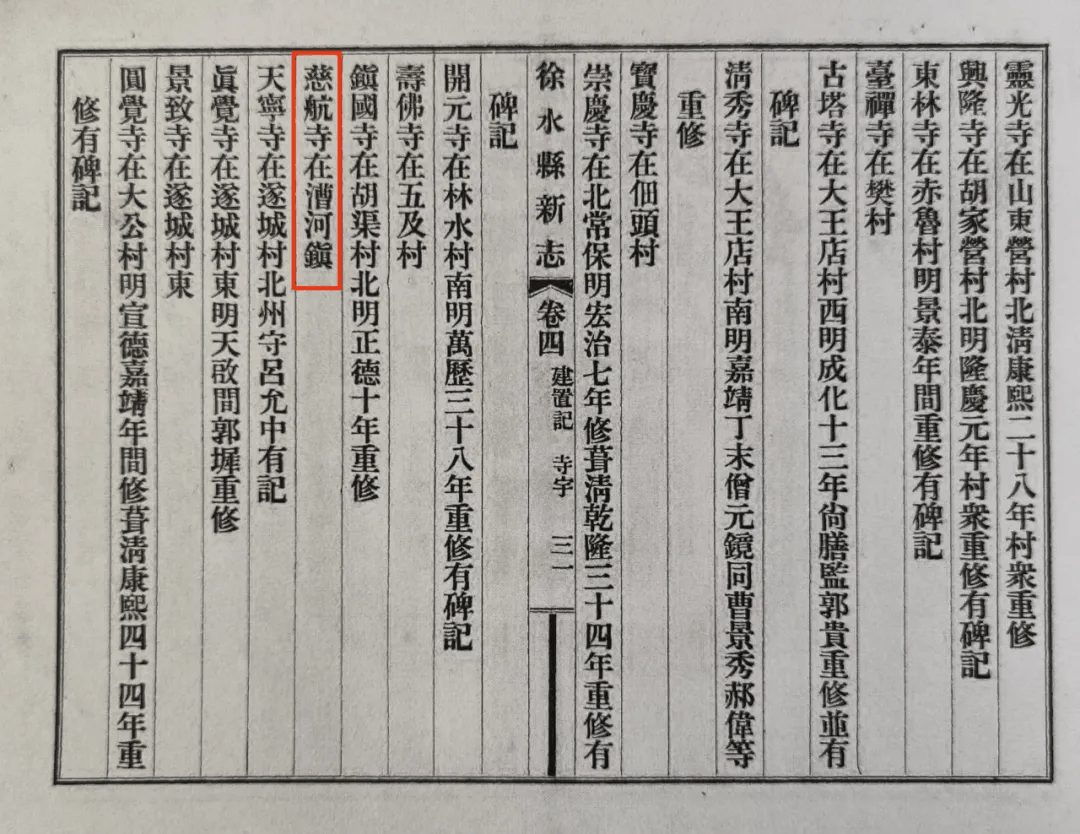 靈光寺在山東營村北淸康熙二十八年村衆重修
興隆寺在胡家營村北明隆慶元年村衆重修有碑記
東林寺在赤魯村明景泰年間重修有碑記
臺禪寺在樊村
古塔寺在大王店村西明成化十三年尙膳監郭貴重修並有
碑記
淸秀寺在大王店村南明嘉靖丁末僧元鏡同曹景秀郝偉等
重修
寶慶寺在佃頭村
崇慶寺在北常保明宏治七年修葺淸乾隆三十四年重修有
徐水縣新志 卷四 建置記 寺宇 三一
碑記
開元寺在林水村南明萬歷三十八年重修有碑記
壽佛寺在五及村
鎭國寺在胡渠村北明正德十年重修
慈航寺在漕河鎭
天寧寺在遂城村北州守呂允中有記
眞覺寺在遂城村東明天啟間郭墀重修
景致寺在遂城村東
圓覺寺在大公村明宣德嘉靖年間修葺淸康熙四十四年重
修有碑記